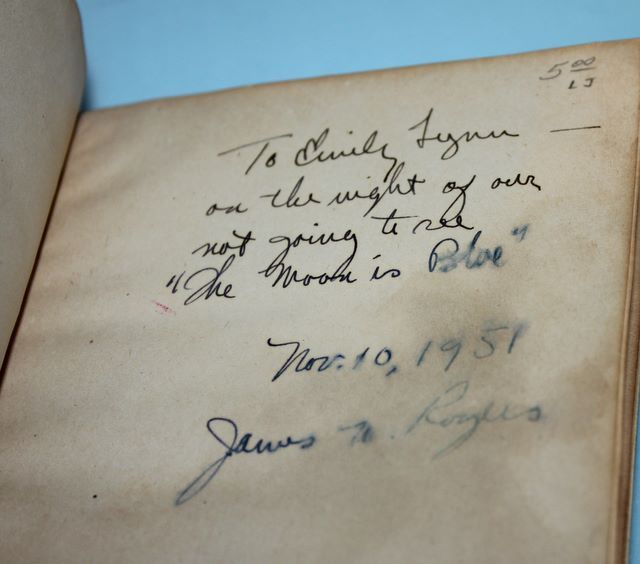 5 00
LJ
To Emily Lynn —
on the night of our
not going to see
"The Moon is Blue"
Nov. 10, 1951
James